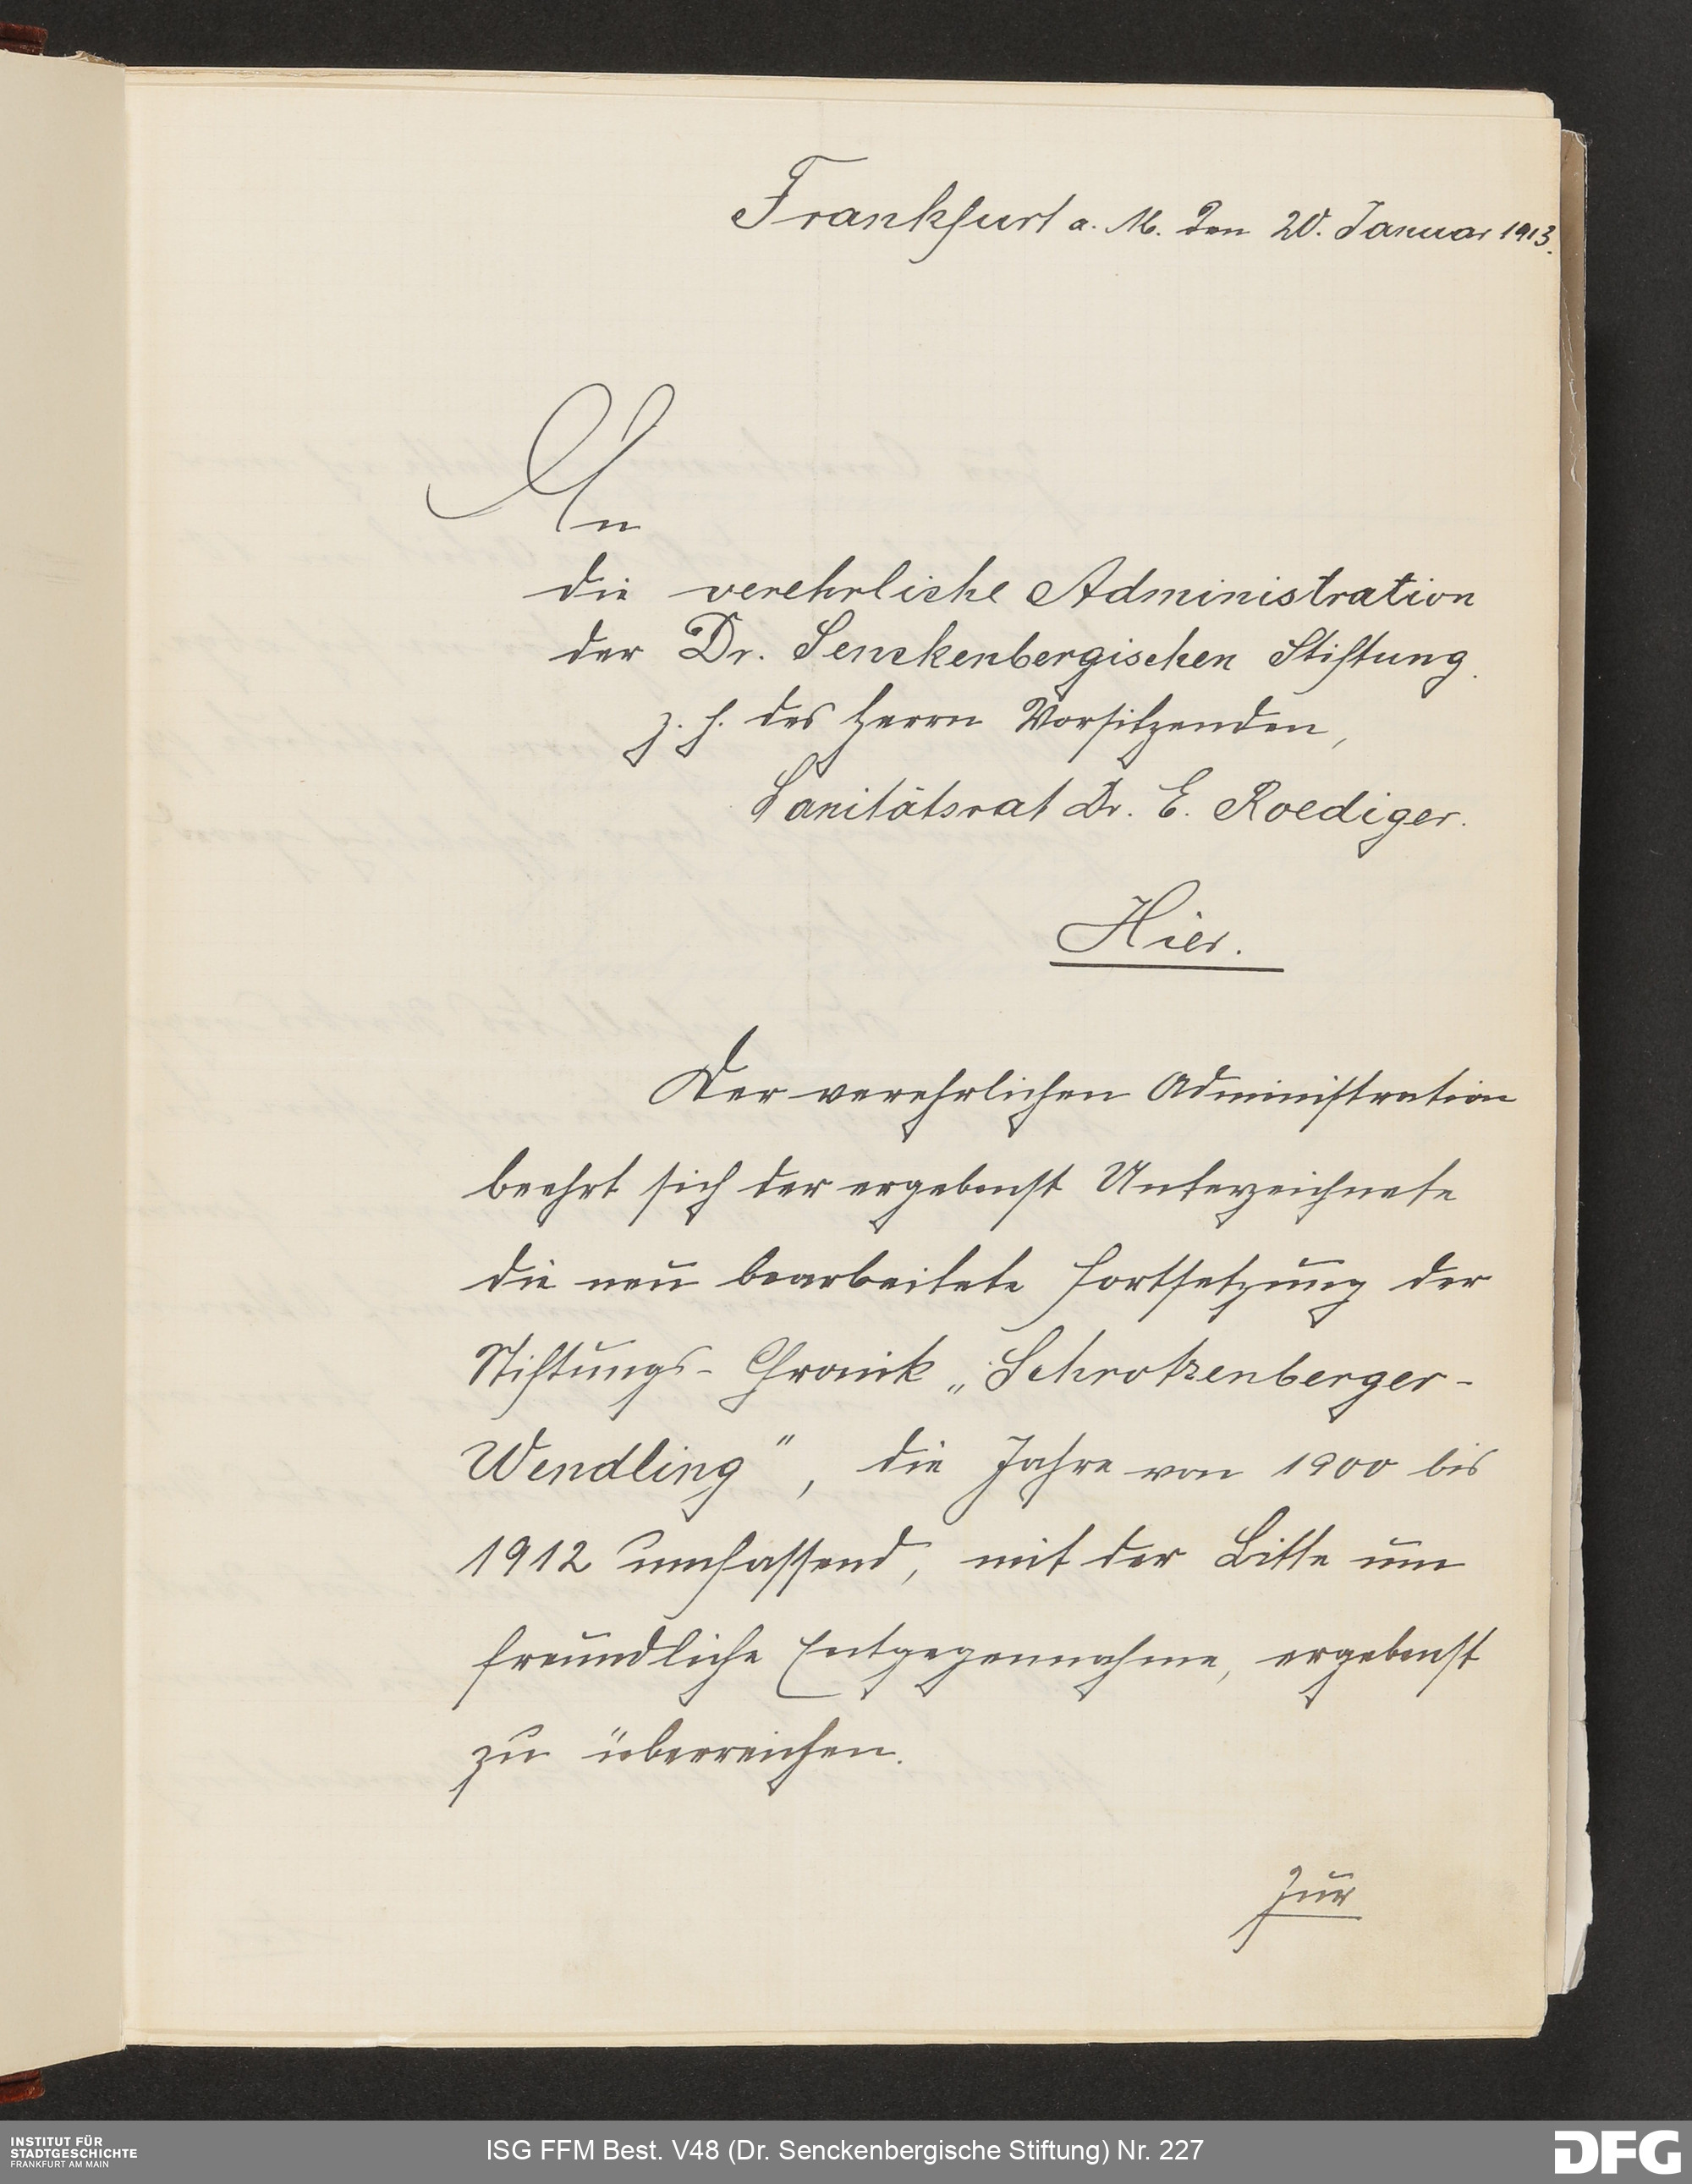 Frankfurt a. M. den 20. Januar 1913.
An
die verehrliche Administration
der Dr. Senckenbergischen Stiftung.
z. H. des Herrn Vorsitzenden,
Sanitätsrat Dr. E. Roediger.
Hier.
Der verehrlichen Administration
beehrt sich der ergebenst Unterzeichnete
die neu bearbeitete Fortsetzung der
Stiftungs-Chronik „Schrotzenberger-
Wendling", die Jahre von 1900 bis
1912 umfassend, mit der Bitte um
freundliche Entgegennahme, ergebenst
zu überreichen.
Zur
INSTITUT FÜR
STADTGESCHICHTE
FRANKFURT AM MAIN
ISG FFM Best. V48 (Dr. Senckenbergische Stiftung) Nr. 227
DFG